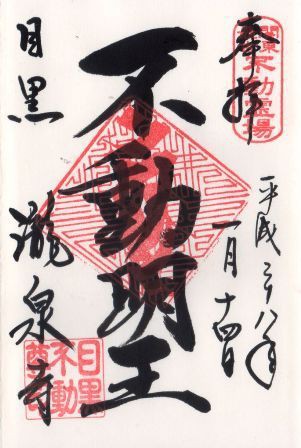 奉拝
関東不動霊場
平成二十八年
一月十四日
不動明王
目黒
瀧泉寺
目黒
不動
尊